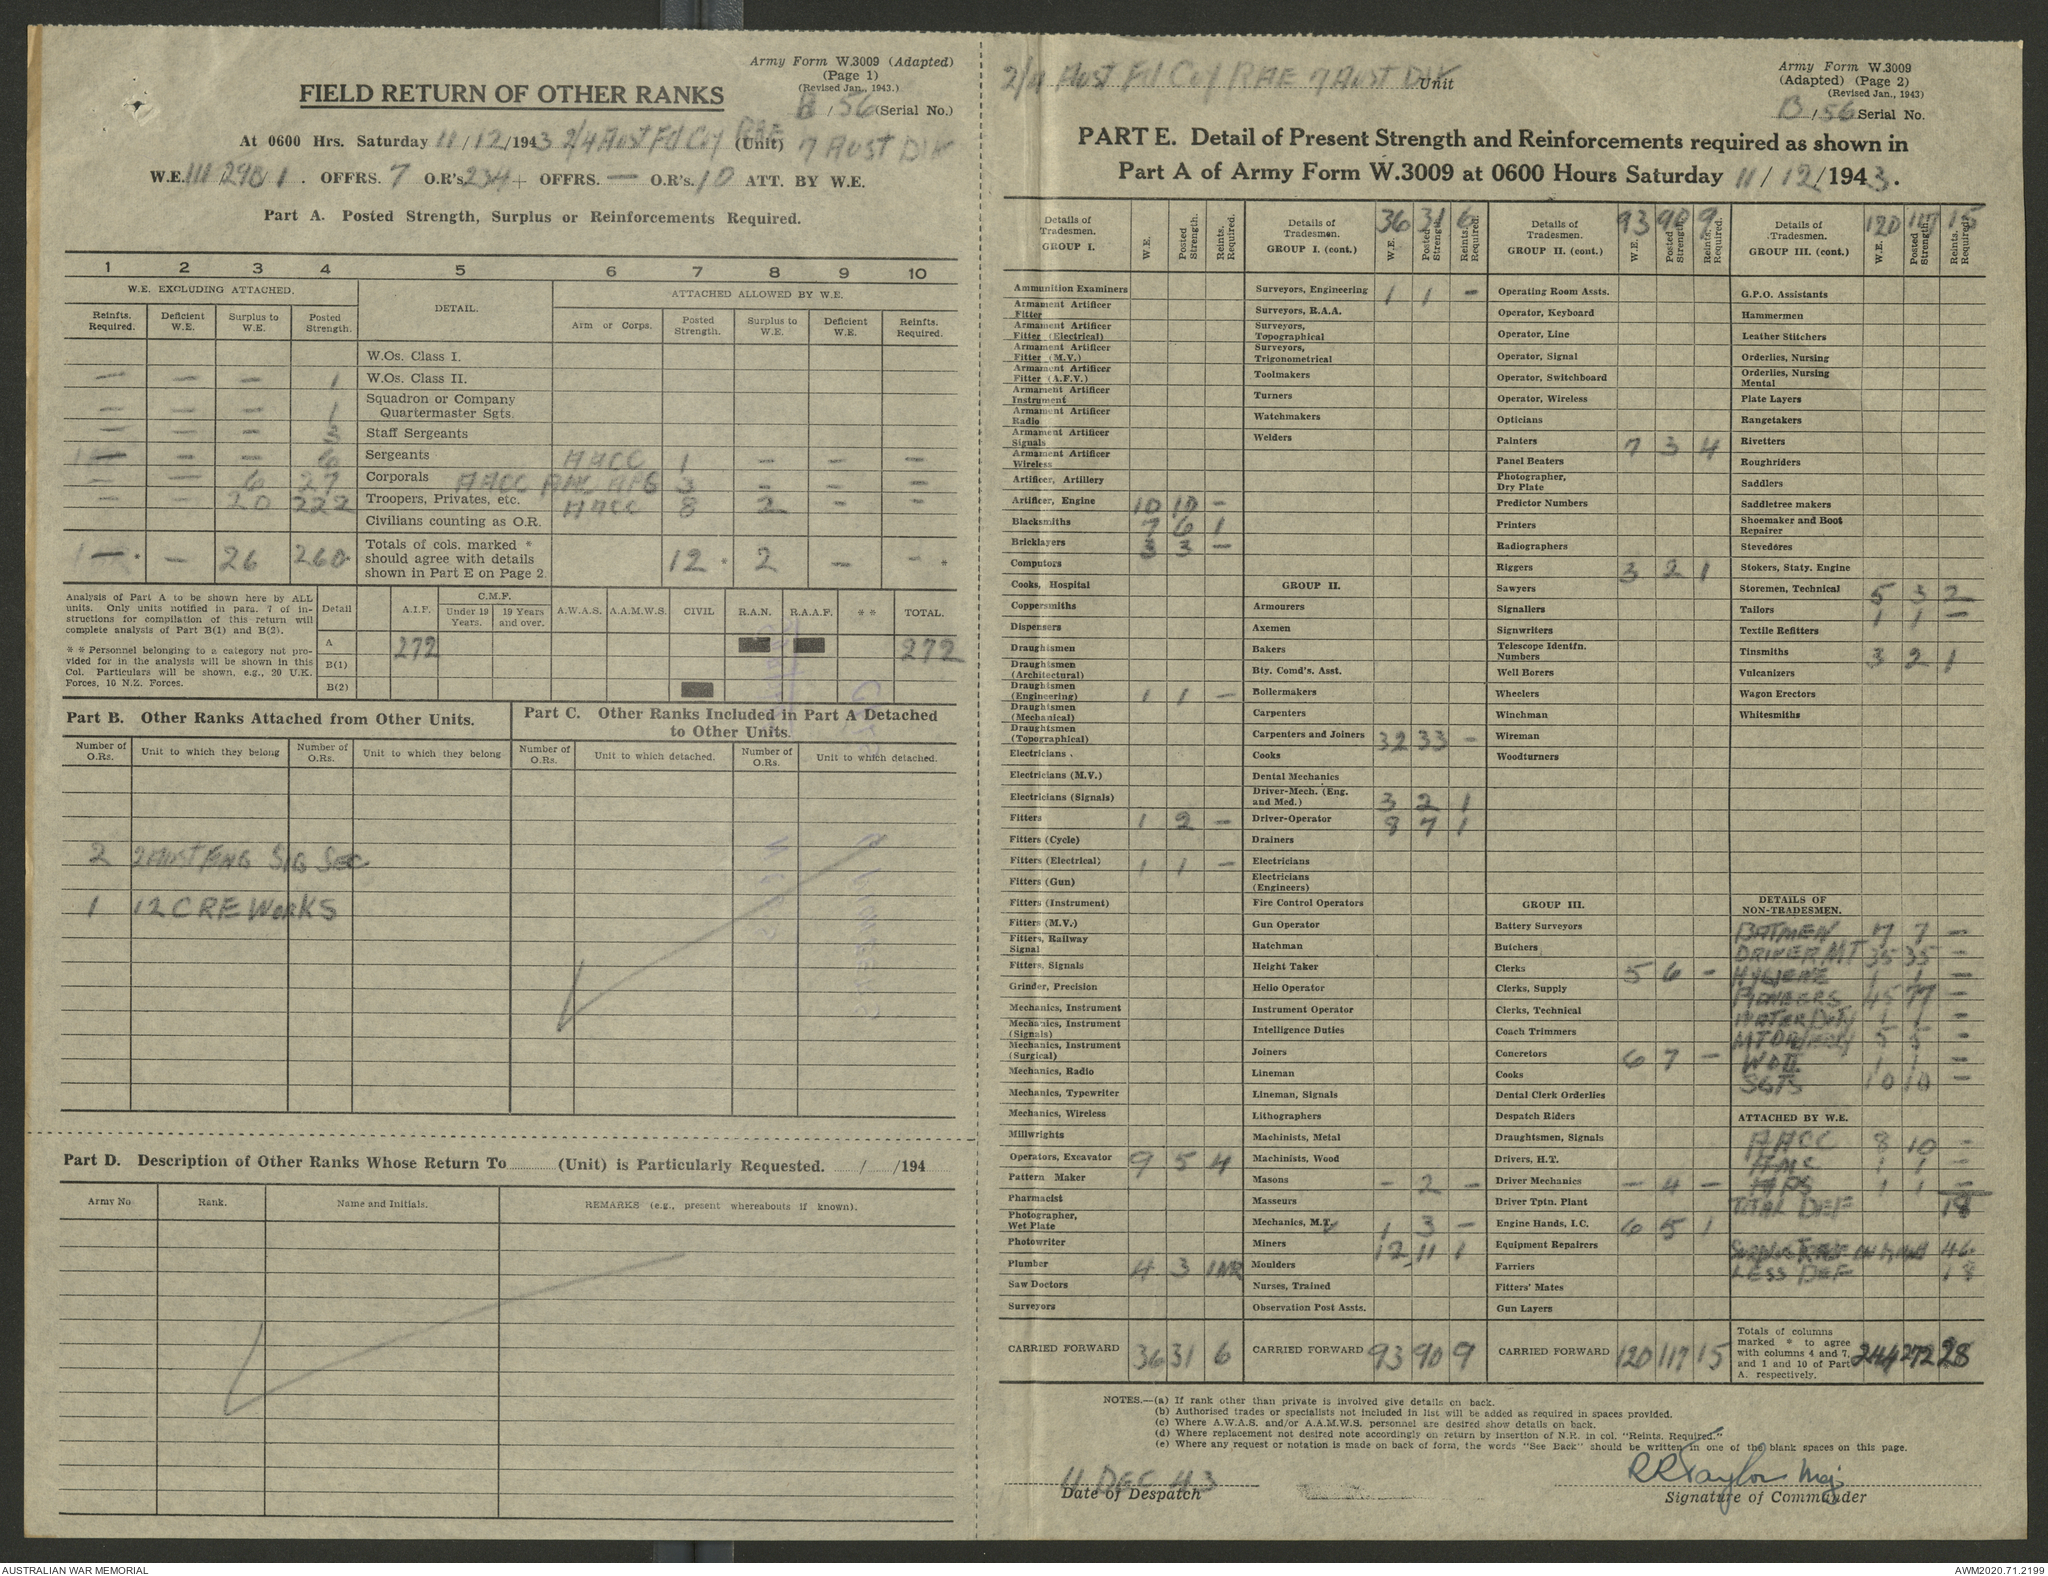 Army Form W.3009 (Adapted)
(Page 1)
(Revised Jan., 1943.)
FIELD RETURN OF OTHER RANKS
B / 56 (Serial No.)
At 0600 Hrs. Saturday 11/12/1943 2/4 Aust Fd Coy RAE (Unit) 7 AUST DIV
W.E. III 290 1 . OFFRS. 7 O.R's. 234 + OFFRS. — O.R's. 10 ATT. BY W.E.
Part A. Posted Strength, Surplus or Reinforcements Required.
1 2 3 4 5 6 7 8 9 10
W.E. EXCLUDING ATTACHED. DETAIL. ATTACHED ALLOWED BY W.E.
Reinfts. Required. Deficient W.E. Surplus to W.E. Posted Strength. Arm or Corps. Posted Strength. Surplus to W.E. Deficient W.E. Reinfts. Required.
W.Os. Class I.
— — — 1 W.Os. Class II.
— — — 1 Squadron or Company Quartermaster Sgts.
— — — Staff Sergeants
— — — 6 Sergeants AACC 1 — — —
— — 6 27 Corporals AACC AMC APS 3 — — —
— — 20 222 Troopers, Privates, etc. AACC 8 2 — —
Civilians counting as O.R.
— . — 26 260. Totals of cols. marked * should agree with details shown in Part E on Page 2. 12 * 2 — — *
Analysis of Part A to be shown here by ALL units. Only units notified in para. 7 of instructions for compilation of this return will complete analysis of Part B(1) and B(2).
* * Personnel belonging to a category not provided for in the analysis will be shown in this Col. Particulars will be shown, e.g., 20 U.K. Forces, 10 N.Z. Forces.
Detail A.I.F. C.M.F. Under 19 Years. 19 Years and over. A.W.A.S. A.A.M.W.S. CIVIL R.A.N. R.A.A.F. * * TOTAL.
A 272 272
B(1)
B(2)
Part B. Other Ranks Attached from Other Units.
Part C. Other Ranks Included in Part A Detached to Other Units.
Number of O.Rs. Unit to which they belong Number of O.Rs. Unit to which they belong Number of O.Rs. Unit to which detached. Number of O.Rs. Unit to which detached.
2 2 AUST SIG SEC
1 12 CRE WORKS
Part D. Description of Other Ranks Whose Return To (Unit) is Particularly Requested. / /194
Army No Rank. Name and Initials. REMARKS (e.g., present whereabouts if known).
2/4 Aust Fd Coy RAE 7 Aust DIV Unit
Army Form W.3009
(Adapted) (Page 2)
(Revised Jan., 1943)
B / 56 Serial No.
PART E. Detail of Present Strength and Reinforcements required as shown in
Part A of Army Form W.3009 at 0600 Hours Saturday 11/12/1943.
Details of Tradesmen. GROUP I. W.E. Posted Strength. Reints. Required.
Ammunition Examiners
Armament Artificer Fitter
Armament Artificer Fitter (Electrical)
Armament Artificer Fitter (M.V.)
Armament Artificer Fitter (A.F.V.)
Armament Artificer Instrument
Armament Artificer Radio
Armament Artificer Signals
Armament Artificer Wireless
Artificer, Artillery
Artificer, Engine 10 10 —
Blacksmiths 7 6 1
Bricklayers 3 3 —
Computors
Cooks, Hospital
Coppersmiths
Dispensers
Draughtsmen
Draughtsmen (Architectural)
Draughtsmen (Engineering) 1 1 —
Draughtsmen (Mechanical)
Draughtsmen (Topographical)
Electricians .
Electricians (M.V.)
Electricians (Signals)
Fitters 1 2 —
Fitters (Cycle)
Fitters (Electrical) 1 1 —
Fitters (Gun)
Fitters (Instrument)
Fitters (M.V.)
Fitters, Railway Signal
Fitters, Signals
Grinder, Precision
Mechanics, Instrument
Mechanics, Instrument (Signals)
Mechanics, Instrument (Surgical)
Mechanics, Radio
Mechanics, Typewriter
Mechanics, Wireless
Millwrights
Operators, Excavator 9 5 4
Pattern Maker
Pharmacist
Photographer, Wet Plate
Photowriter
Plumber 4 3 1 NR
Saw Doctors
Surveyors
CARRIED FORWARD 36 31 6
Details of Tradesmen. GROUP I. (cont.) 36 31 6 W.E. Posted Strength Reints. Required.
Surveyors, Engineering 1 1 —
Surveyors, R.A.A.
Surveyors, Topographical
Surveyors, Trigonometrical
Toolmakers
Turners
Watchmakers
Welders
GROUP II.
Armourers
Axemen
Bakers
Bty. Comd's. Asst.
Boilermakers
Carpenters
Carpenters and Joiners 32 33 —
Cooks
Dental Mechanics
Driver-Mech. (Eng. and Med.) 3 2 1
Driver-Operator 8 7 1
Drainers
Electricians
Electricians (Engineers)
Fire Control Operators
Gun Operator
Hatchman
Height Taker
Helio Operator
Instrument Operator
Intelligence Duties
Joiners
Lineman
Lineman, Signals
Lithographers
Machinists, Metal
Machinists, Wood
Masons — 2 —
Masseurs
Mechanics, M.T. 1 3 —
Miners 12 11 1
Moulders
Nurses, Trained
Observation Post Assts.
CARRIED FORWARD 93 90 9
Details of Tradesmen. GROUP II. (cont.) 93 90 9 W.E. Posted Strength Reints. Required.
Operating Room Assts.
Operator, Keyboard
Operator, Line
Operator, Signal
Operator, Switchboard
Operator, Wireless
Opticians
Painters 7 3 4
Panel Beaters
Photographer, Dry Plate
Predictor Numbers
Printers
Radiographers
Riggers 3 2 1
Sawyers
Signallers
Signwriters
Telescope Identfn. Numbers
Well Borers
Wheelers
Winchman
Wireman
Woodturners
GROUP III.
Battery Surveyors
Butchers
Clerks 5 6 —
Clerks, Supply
Clerks, Technical
Coach Trimmers
Concretors 6 7 —
Cooks
Dental Clerk Orderlies
Despatch Riders
Draughtsmen, Signals
Drivers, H.T.
Driver Mechanics — 4 —
Driver Tptn. Plant
Engine Hands, I.C. 6 5 1
Equipment Repairers
Farriers
Fitters' Mates
Gun Layers
CARRIED FORWARD 120 117 15
Details of Tradesmen. GROUP III. (cont.) 120 117 15 W.E. Posted Strength. Reints. Required.
G.P.O. Assistants
Hammermen
Leather Stitchers
Orderlies, Nursing
Orderlies, Nursing Mental
Plate Layers
Rangetakers
Rivetters
Roughriders
Saddlers
Saddletree makers
Shoemaker and Boot Repairer
Stevedores
Stokers, Staty. Engine
Storemen, Technical 5 3 2
Tailors 1 1 —
Textile Refitters
Tinsmiths 3 2 1
Vulcanizers
Wagon Erectors
Whitesmiths
DETAILS OF NON-TRADESMEN.
BATMEN 7 7 —
DRIVER MT 35 35 —
HYGIENE 1 1 —
PIONEERS 45 77 —
WATER DUTY 1 1 —
5 5 —
WO II 1 1 —
SGTS 10 10 —
ATTACHED BY W.E.
AACC 8 10 —
AMC 1 1 —
APS 1 1 —
TOTAL DEF 18
46
LESS DEF 18
Totals of columns marked * to agree with columns 4 and 7, and 1 and 10 of Part A. respectively. 244 272 28
NOTES.—(a) If rank other than private is involved give details on back.
(b) Authorised trades or specialists not included in list will be added as required in spaces provided.
(c) Where A.W.A.S. and/or A.A.M.W.S. personnel are desired show details on back.
(d) Where replacement not desired note accordingly on return by insertion of N.R. in col. "Reints. Required."
(e) Where any request or notation is made on back of form, the words "See Back" should be written in one of the blank spaces on this page.
11 DEC 43
Date of Despatch
RR Taylor Maj
Signature of Commander
AUSTRALIAN WAR MEMORIAL
AWM2020.71.2199